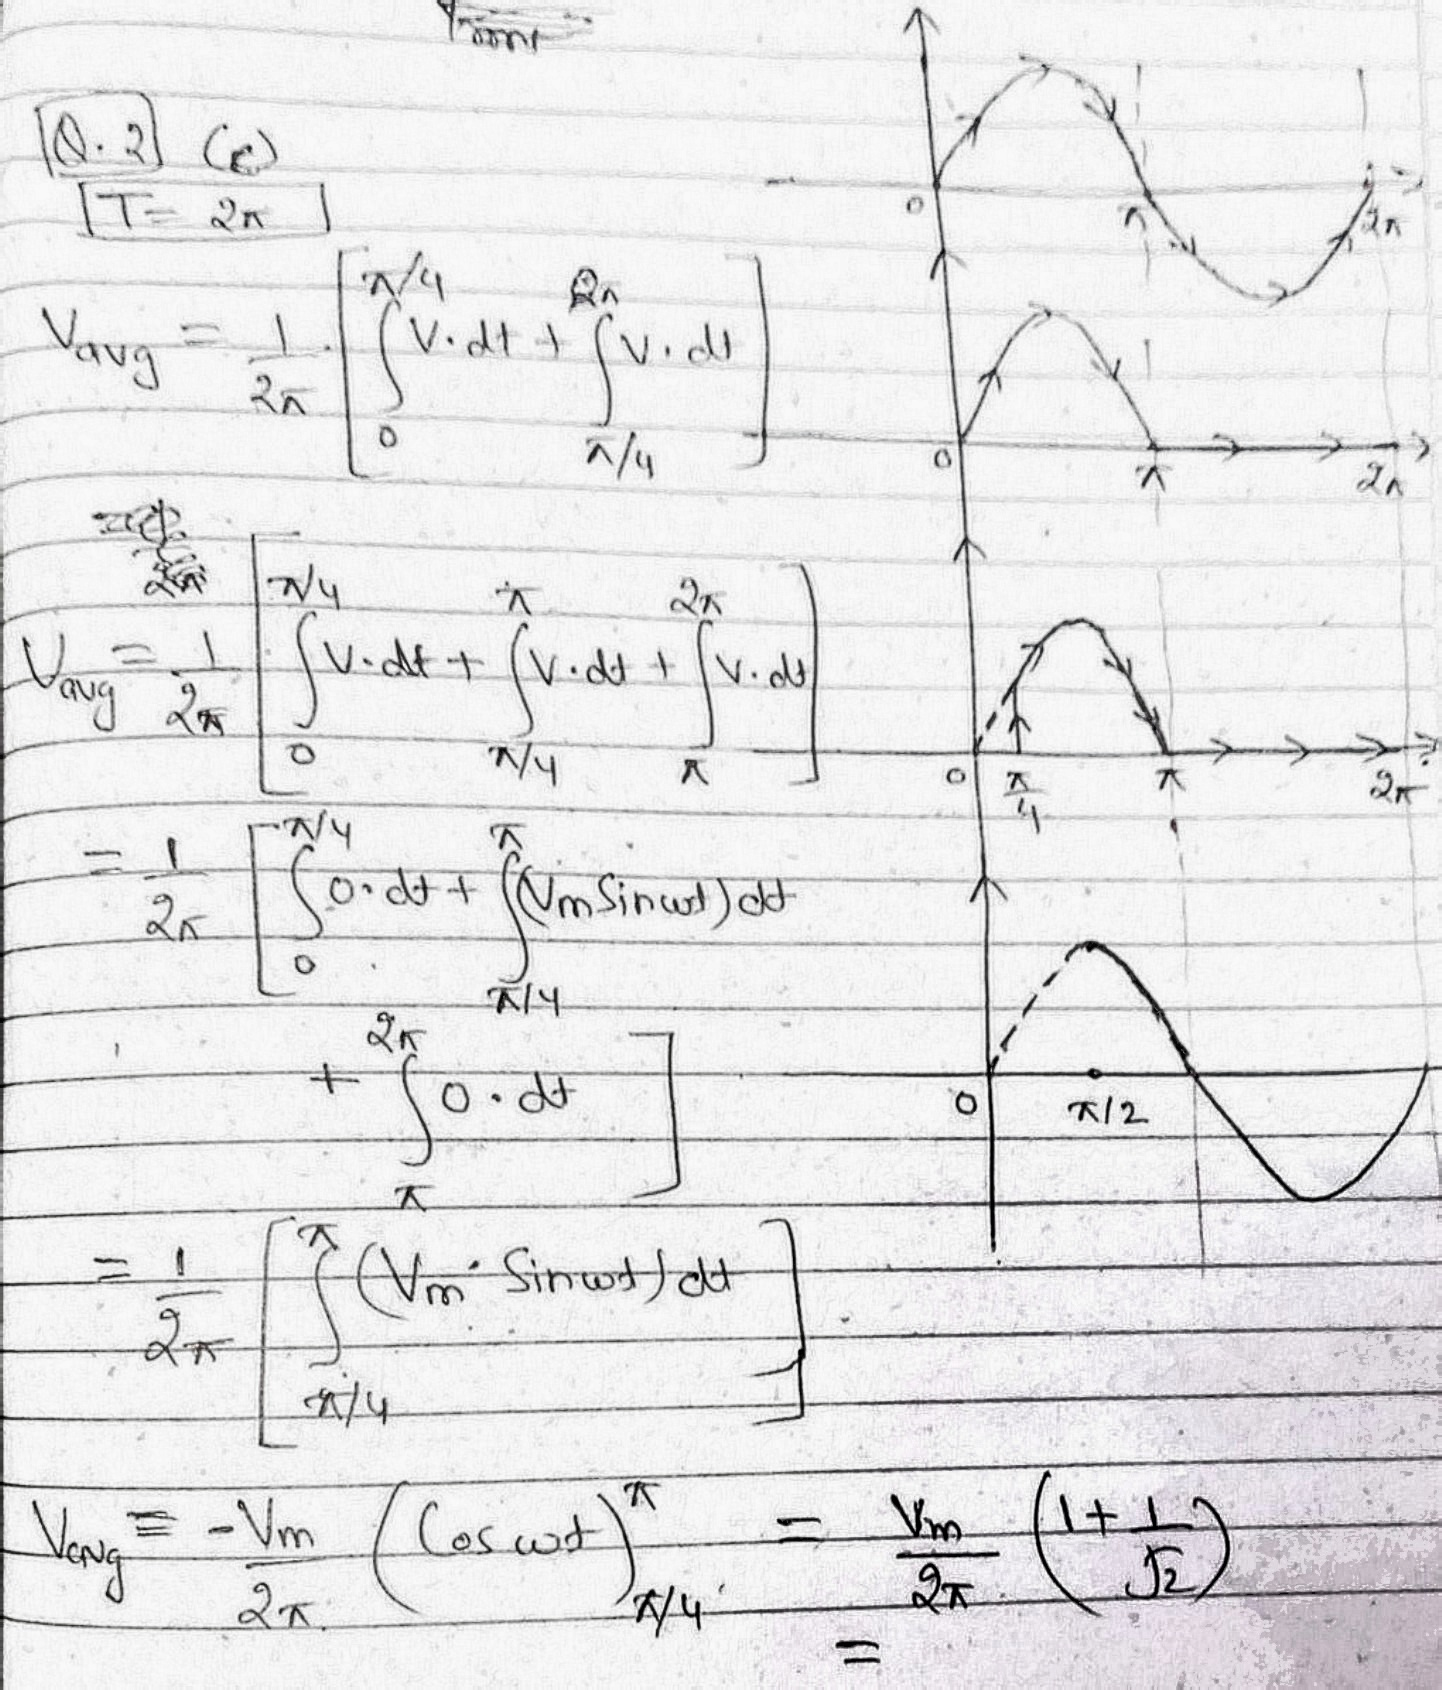 Q.2 (c)
T = 2π
Vavg = 1/2π [ ∫₀^π/4 V·dt + ∫π/4^2π V·dt ]
2π
Vavg = 1/2π [ ∫₀^π/4 V·dt + ∫π/4^π V·dt + ∫π^2π V·dt ]
= 1/2π [ ∫₀^π/4 0·dt + ∫π/4^π (Vm Sinωt) dt
+ ∫π^2π 0·dt ]
= 1/2π [ ∫π/4^π (Vm · Sinωt) dt ]
Vavg = -Vm/2π (Cos ωt)π/4^π = Vm/2π (1 + 1/√2)
=
0 π 2π
0 π 2π
0 π/4 π 2π
0 π/2